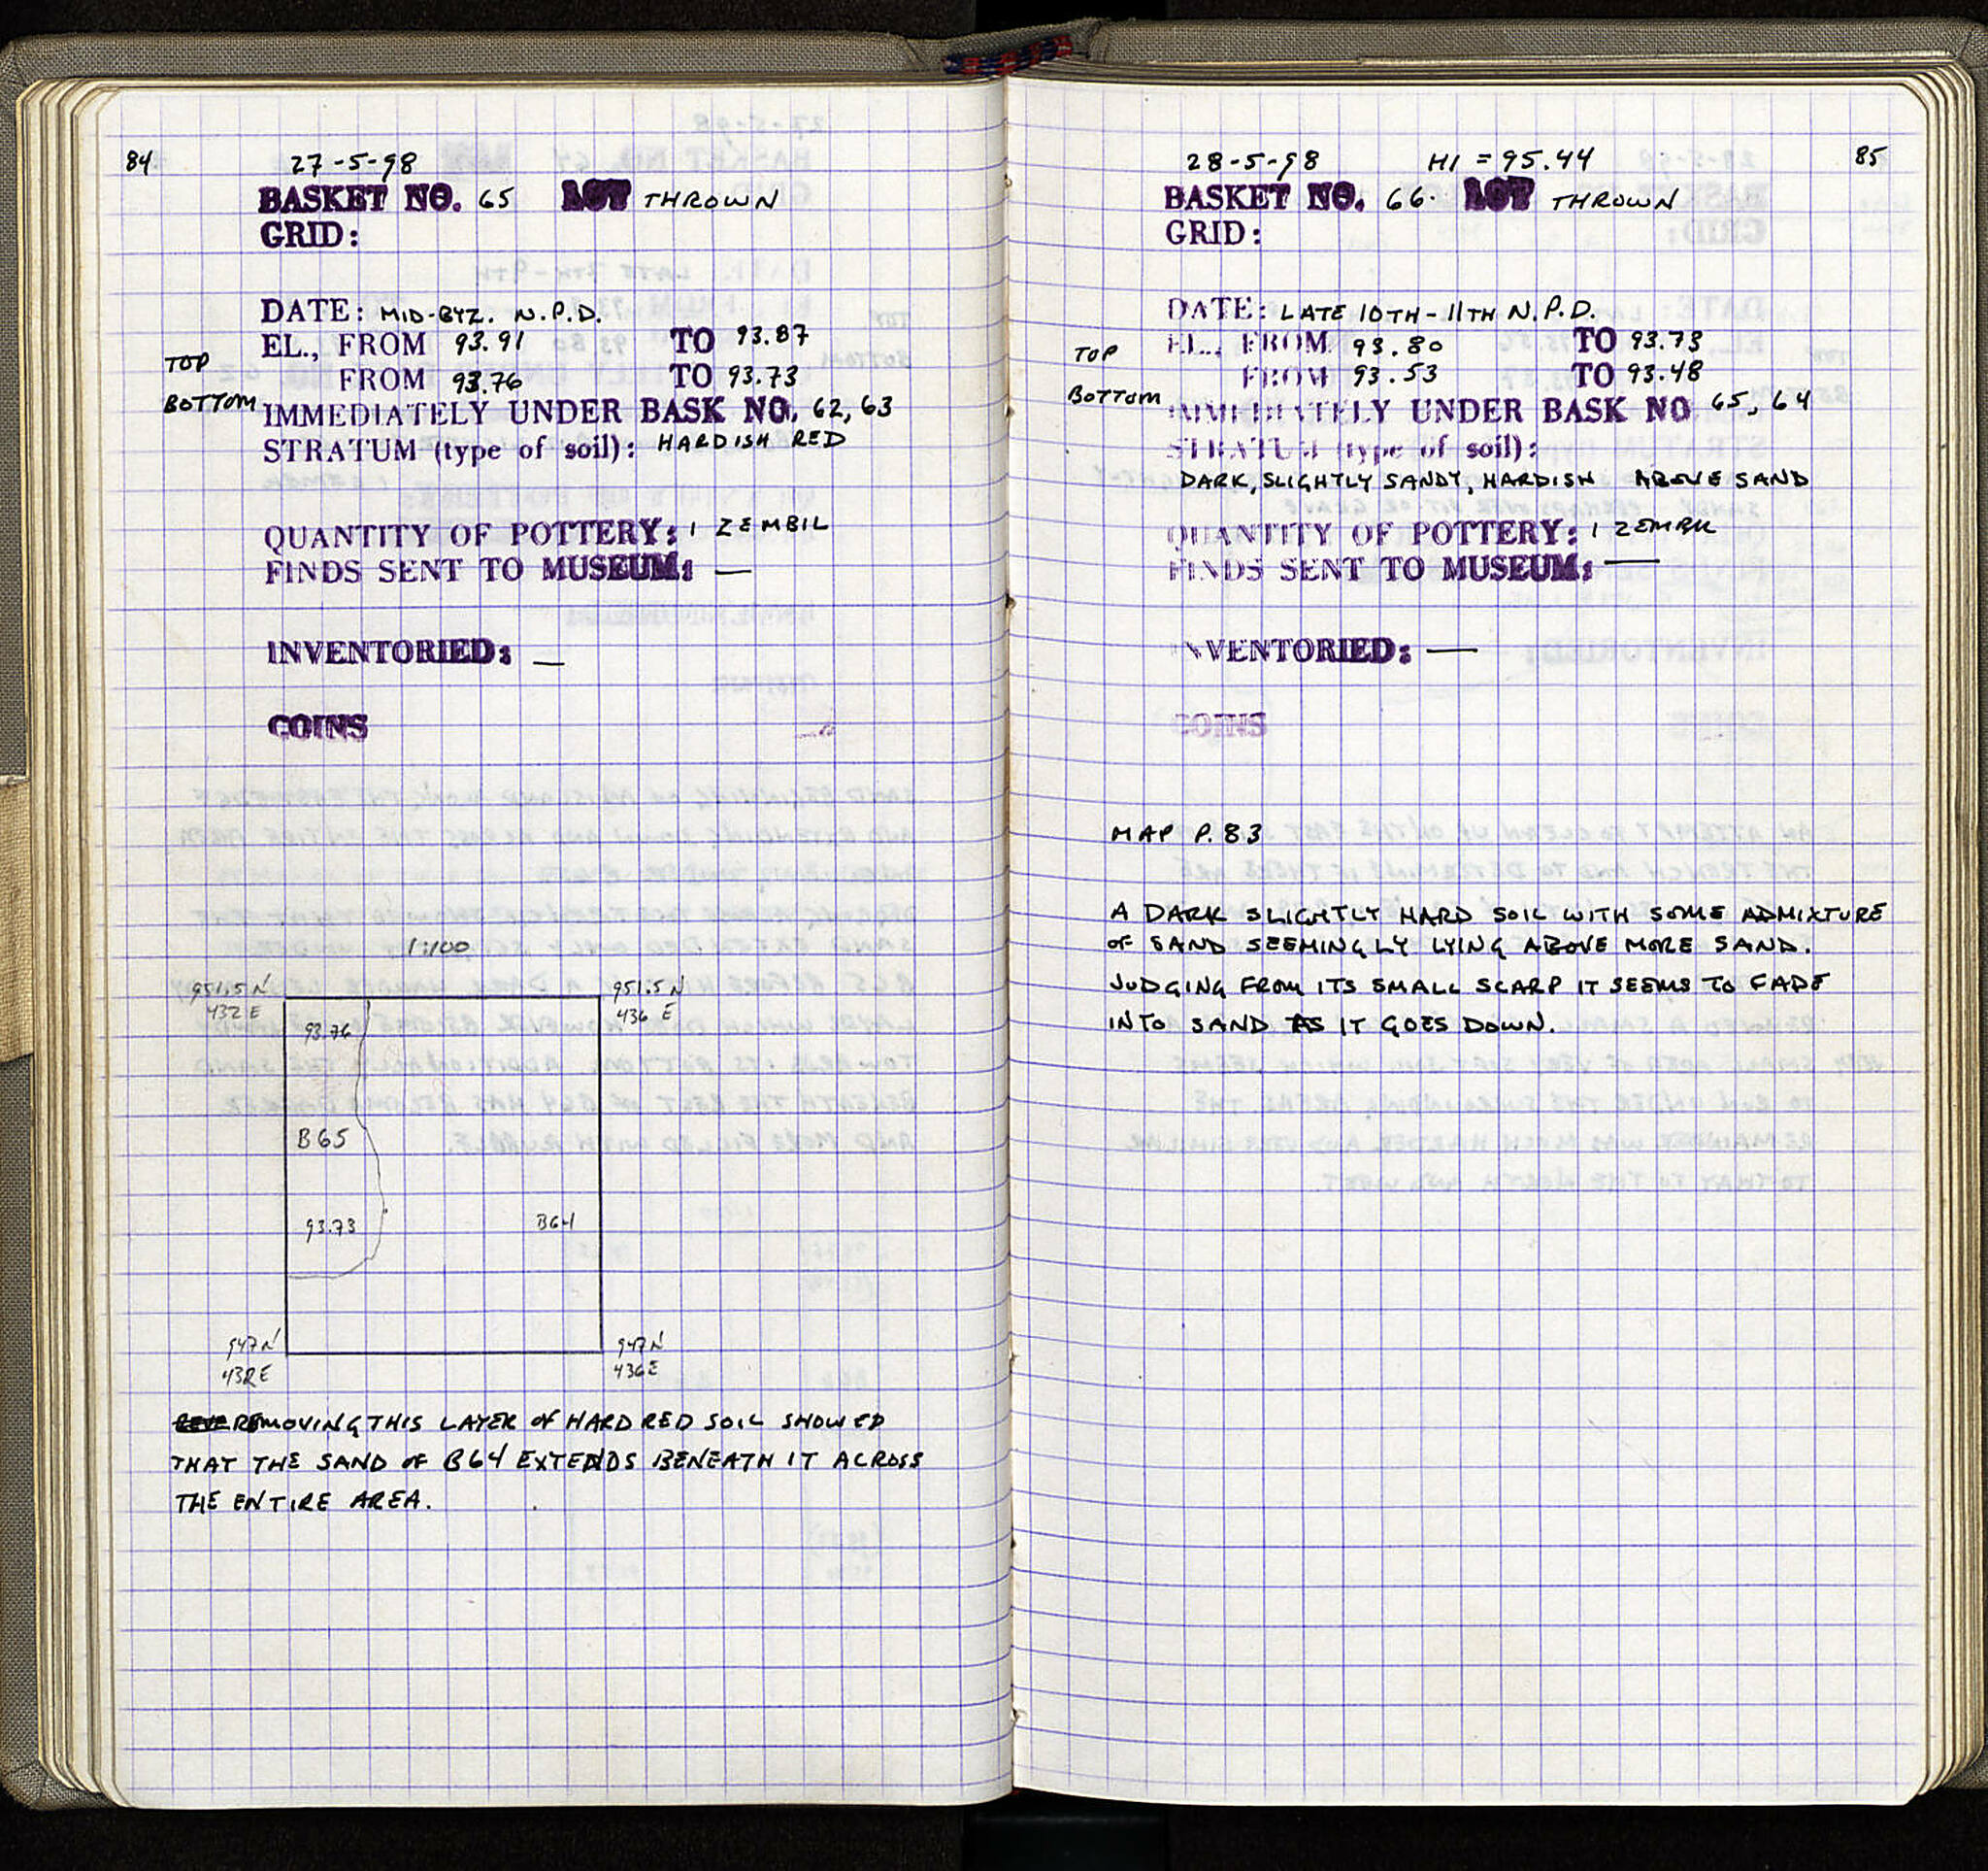 84
27-5-98
BASKET NO. 65 LOT THROWN
GRID:
DATE: MID-BYZ. N.P.D.
TOP EL., FROM 93.91 TO 93.87
BOTTOM FROM 93.76 TO 93.73
IMMEDIATELY UNDER BASK NO. 62, 63
STRATUM (type of soil): HARDISH RED
QUANTITY OF POTTERY: 1 ZEMBIL
FINDS SENT TO MUSEUM: —
INVENTORIED: —
COINS
1:100
951.5 N
432 E
951.5 N
436 E
93.76
B65
93.73
B64
947 N
432 E
947 N
436 E
REMOVING THIS LAYER OF HARD RED SOIL SHOWED
THAT THE SAND OF B64 EXTENDS BENEATH IT ACROSS
THE ENTIRE AREA.
85
28-5-98 HI = 95.44
BASKET NO. 66. LOT THROWN
GRID:
DATE: LATE 10TH-11TH N.P.D.
TOP EL., FROM 93.80 TO 93.73
BOTTOM FROM 93.53 TO 93.48
IMMEDIATELY UNDER BASK NO 65, 64
STRATUM (type of soil):
DARK, SLIGHTLY SANDY, HARDISH ABOVE SAND
QUANTITY OF POTTERY: 1 ZEMBIL
FINDS SENT TO MUSEUM: —
INVENTORIED: —
COINS
MAP P. 83
A DARK SLIGHTLY HARD SOIL WITH SOME ADMIXTURE
OF SAND SEEMINGLY LYING ABOVE MORE SAND.
JUDGING FROM ITS SMALL SCARP IT SEEMS TO FADE
INTO SAND AS IT GOES DOWN.